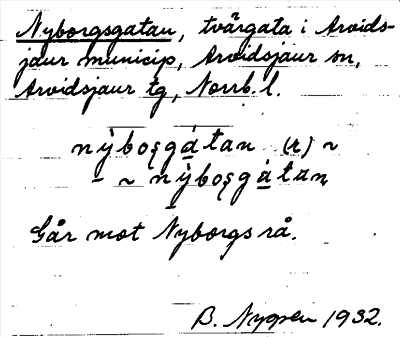 Nyborgsgatan, tvärgata i Arvids-
jaur municip, Arvidsjaur sn,
Arvidsjaur tg, Norrb. l.
nýboʂgàtan (r) ~
~ nỳboʂgátan
Går mot Nyborgs rå.
B. Nygren 1932.